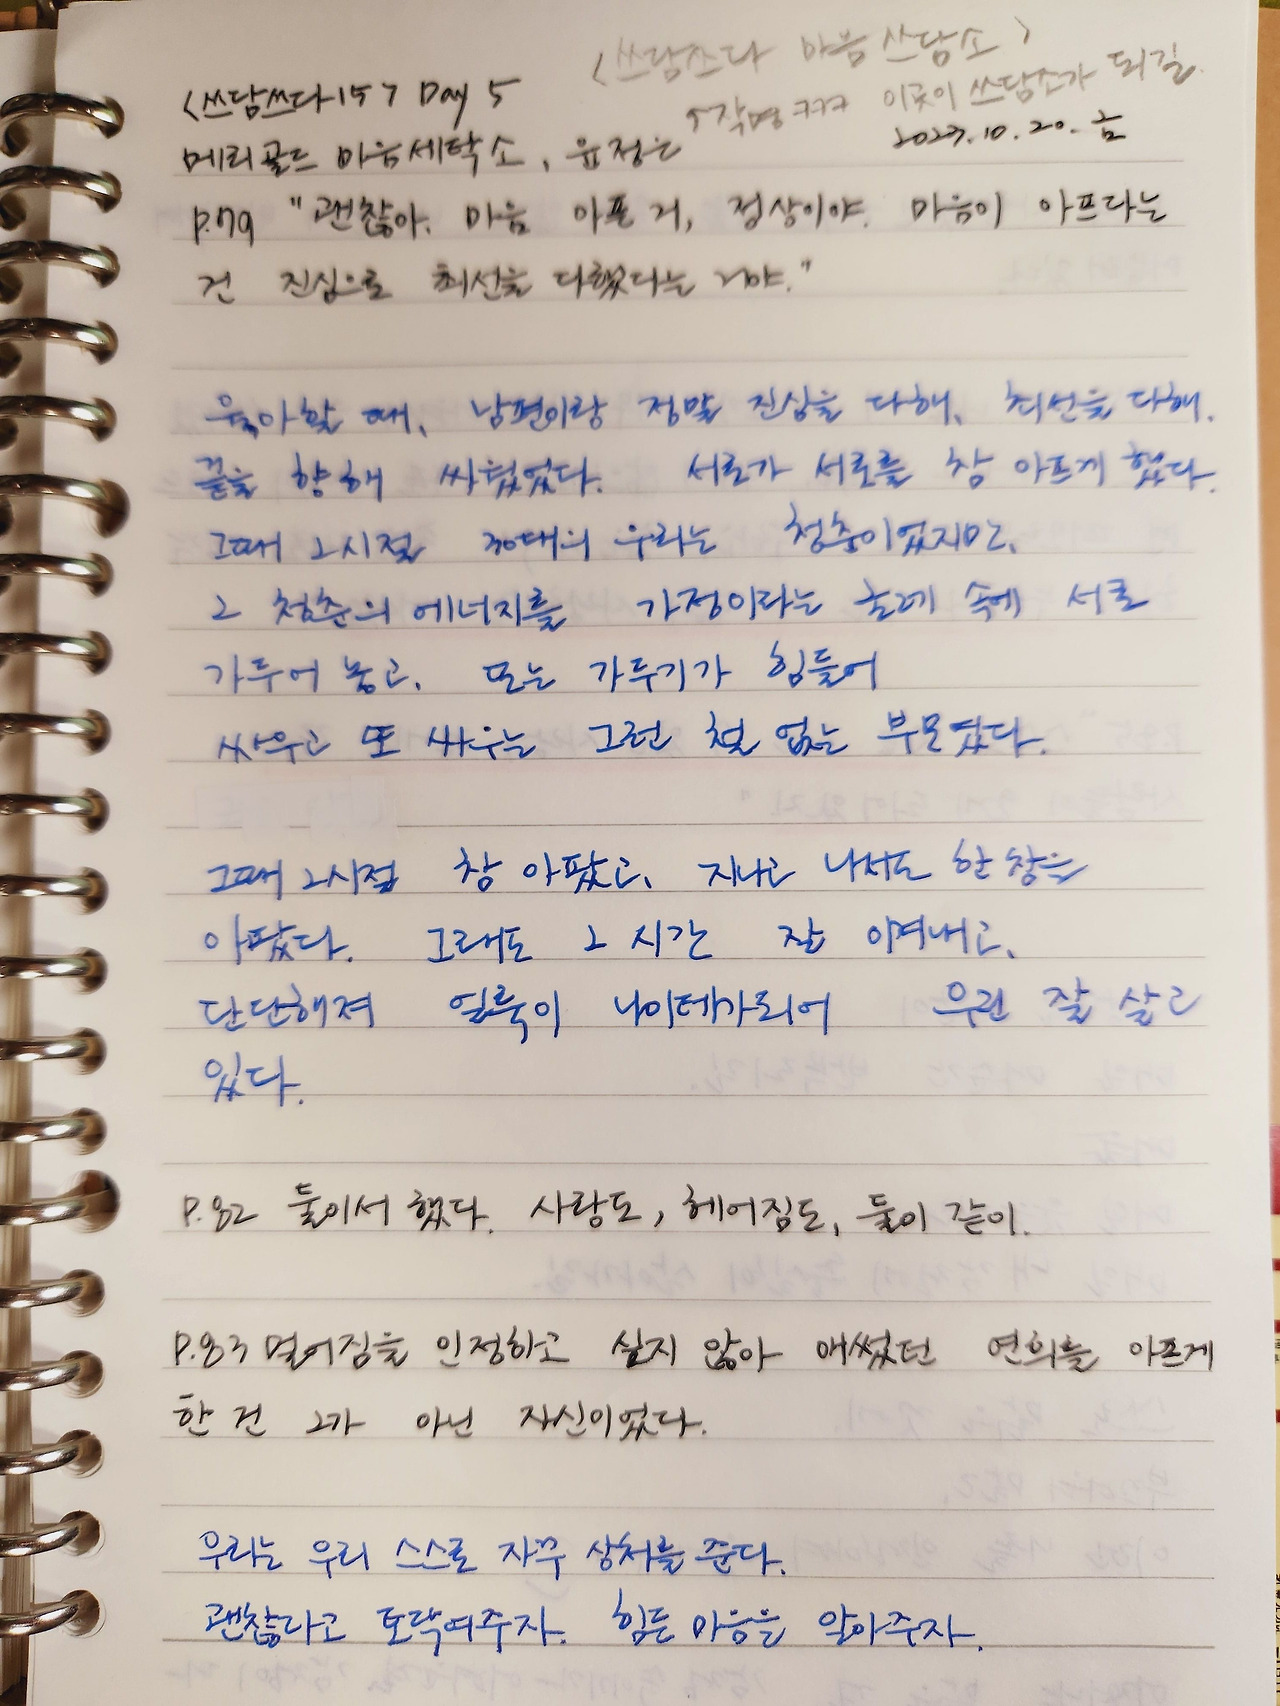 <쓰담쓰다 마음 쓰담소>
<쓰담쓰다15> Day 5
↑작명 ㅋㅋㅋ 이곳이 쓰담소가 되길
2023.10.20. 금
메리골드 마음세탁소, 윤정은
P.79 "괜찮아. 마음 아픈 거, 정상이야. 마음이 아프다는
건 진심으로 최선을 다했다는 거야."
육아할 때, 남편이랑 정말 진심을 다해, 최선을 다해.
끝을 향해 싸웠었다. 서로가 서로를 참 아프게 했다.
그때 그시절 30대의 우리는 청춘이었지만,
그 청춘의 에너지를 가정이라는 굴레 속에 서로
가두어 놓고, 또는 가두기가 힘들어
싸우고 또 싸우는 그런 철 없는 부모였다.
그때 그시절 참 아팠고, 지나고 나서도 한참을
아팠다. 그래도 그 시간 잘 이겨내고,
단단해져 얼룩이 나이테가되어 우린 잘 살고
있다.
P.82 둘이서 했다. 사랑도, 헤어짐도, 둘이 같이.
P.83 멀어짐을 인정하고 싶지 않아 애썼던 연희를 아프게
한 건 그가 아닌 자신이었다.
우리는 우리 스스로 자꾸 상처를 준다.
괜찮다고 토닥여주자. 힘든 마음을 알아주자.